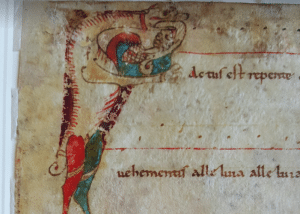 Factus est repente
uehementis alle luia alle luia